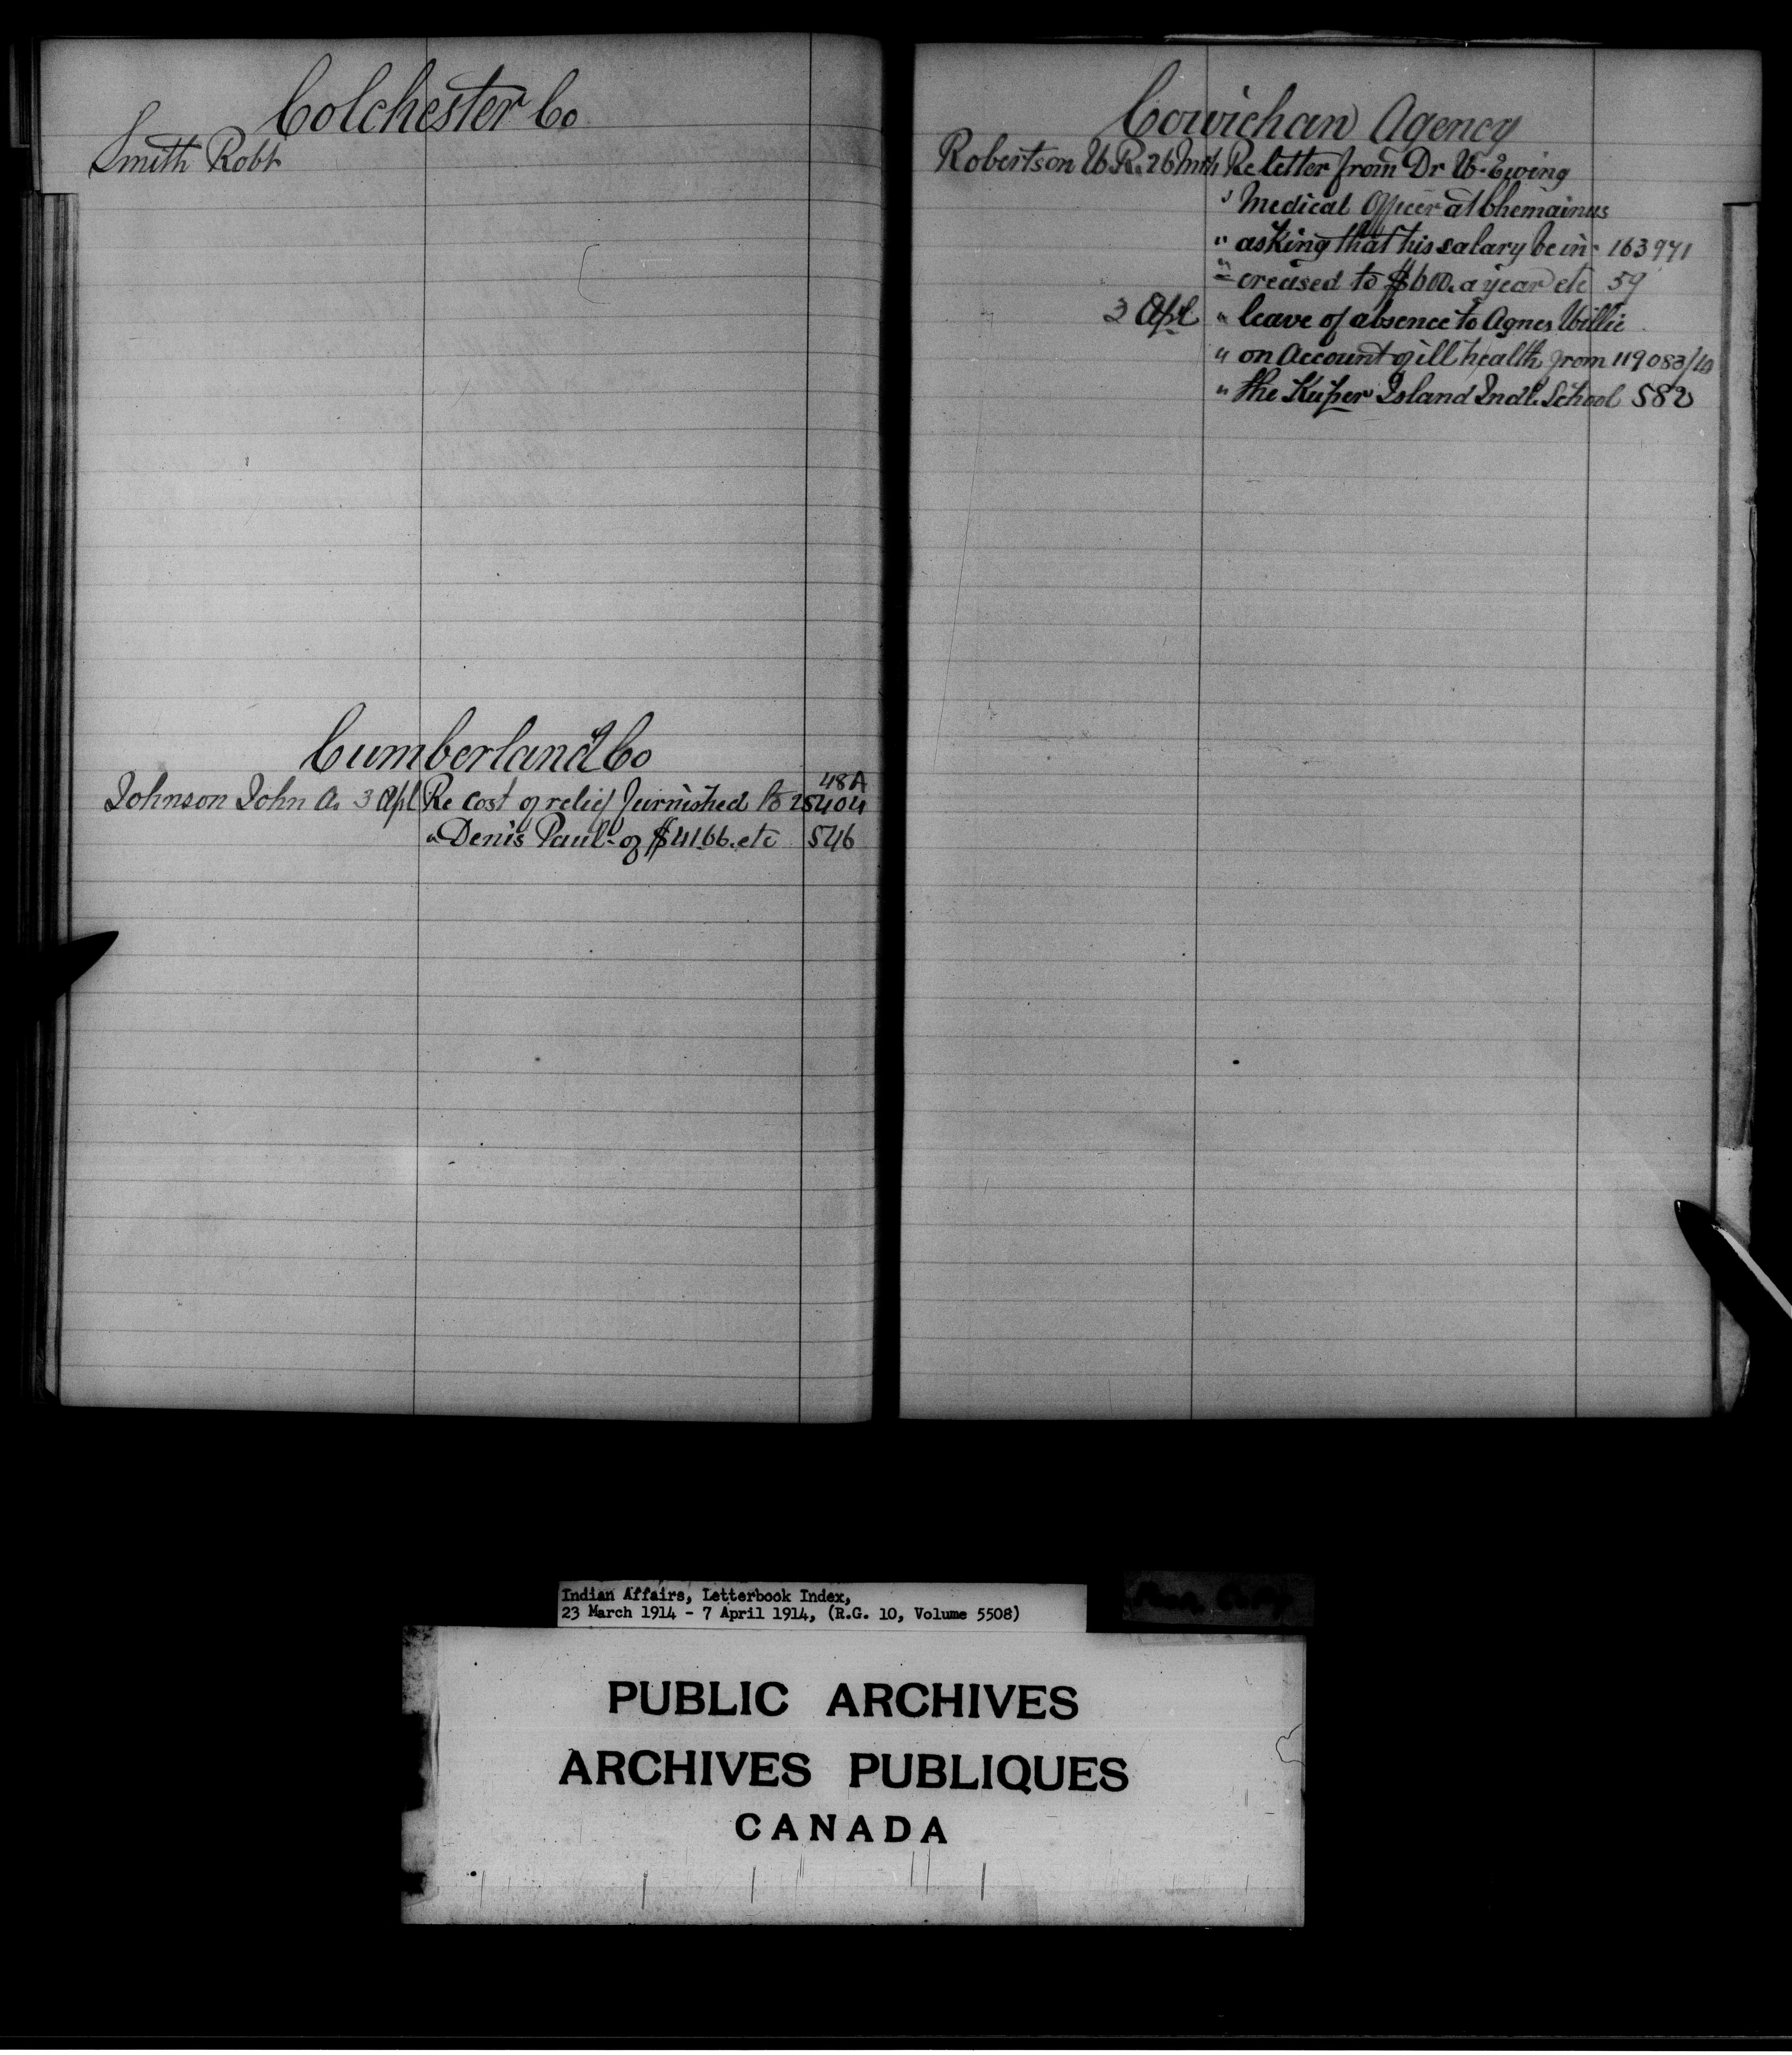 Colchester Co
Smith Robt
Cumberland Co
48A
Johnson John A. 3 Apl Re cost of relief furnished to 25404
" Denis Paul - of $41.66. etc 546
Cowichan Agency
Robertson W. R. 26 Mch Re letter from Dr W. Ewing
" Medical Officer at Chemainus
" asking that his salary be in- 163971
" creased to $600. a year etc 59
3 Apl " leave of absence to Agnes Willie
" on Account of ill health from 119083/10
" the Kuper Island Indl. School 582
Indian Affairs, Letterbook Index,
23 March 1914 - 7 April 1914, (R.G. 10, Volume 5508)
PUBLIC ARCHIVES
ARCHIVES PUBLIQUES
CANADA